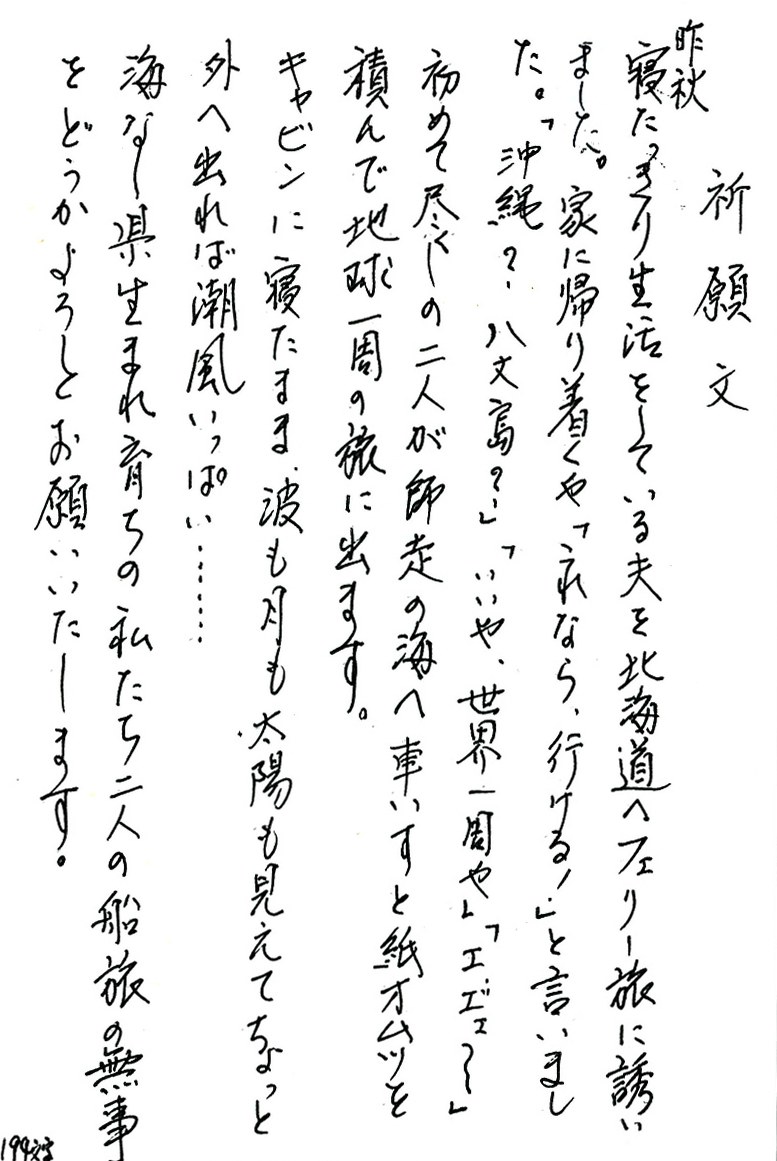 祈願文
昨秋
寝たっきり生活をしている夫を北海道へフェリー旅に誘い
ました。家に帰り着くや「これなら、行ける!」と言いまし
た。「沖縄?八丈島?」「いいや、世界一周や」「エエェ〜」
初めて尽くしの二人が師走の海へ車いすと紙オムツを
積んで地球一周の旅に出ます。
キャビンに寝たまま、波も月も太陽も見えてちょっと
外へ出れば潮風いっぱい……
海なし県生まれ育ちの私たち二人の船旅の無事
をどうかよろしくお願いいたします。
199文字